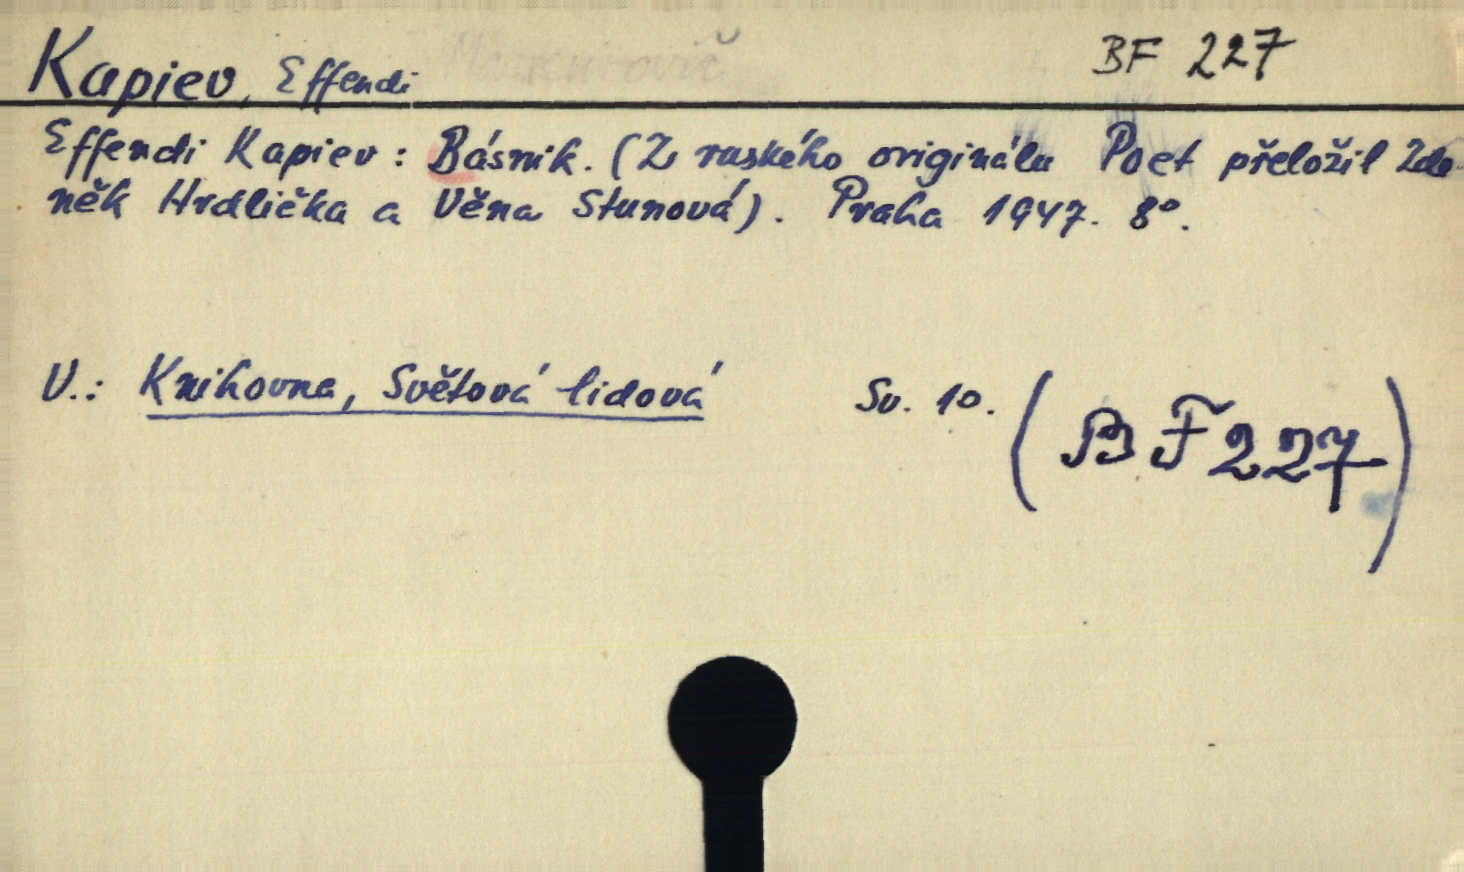 Kapiev, Effendi BF 227
Effendi Kapiev: Básnik. (Z ruského originálu Poet přeložil Zde-
něk Hrdlička a Věna Stunová). Praha 1947. 8°.
V.: Knihovna, Světová lidová Sv. 10. (BF 227)